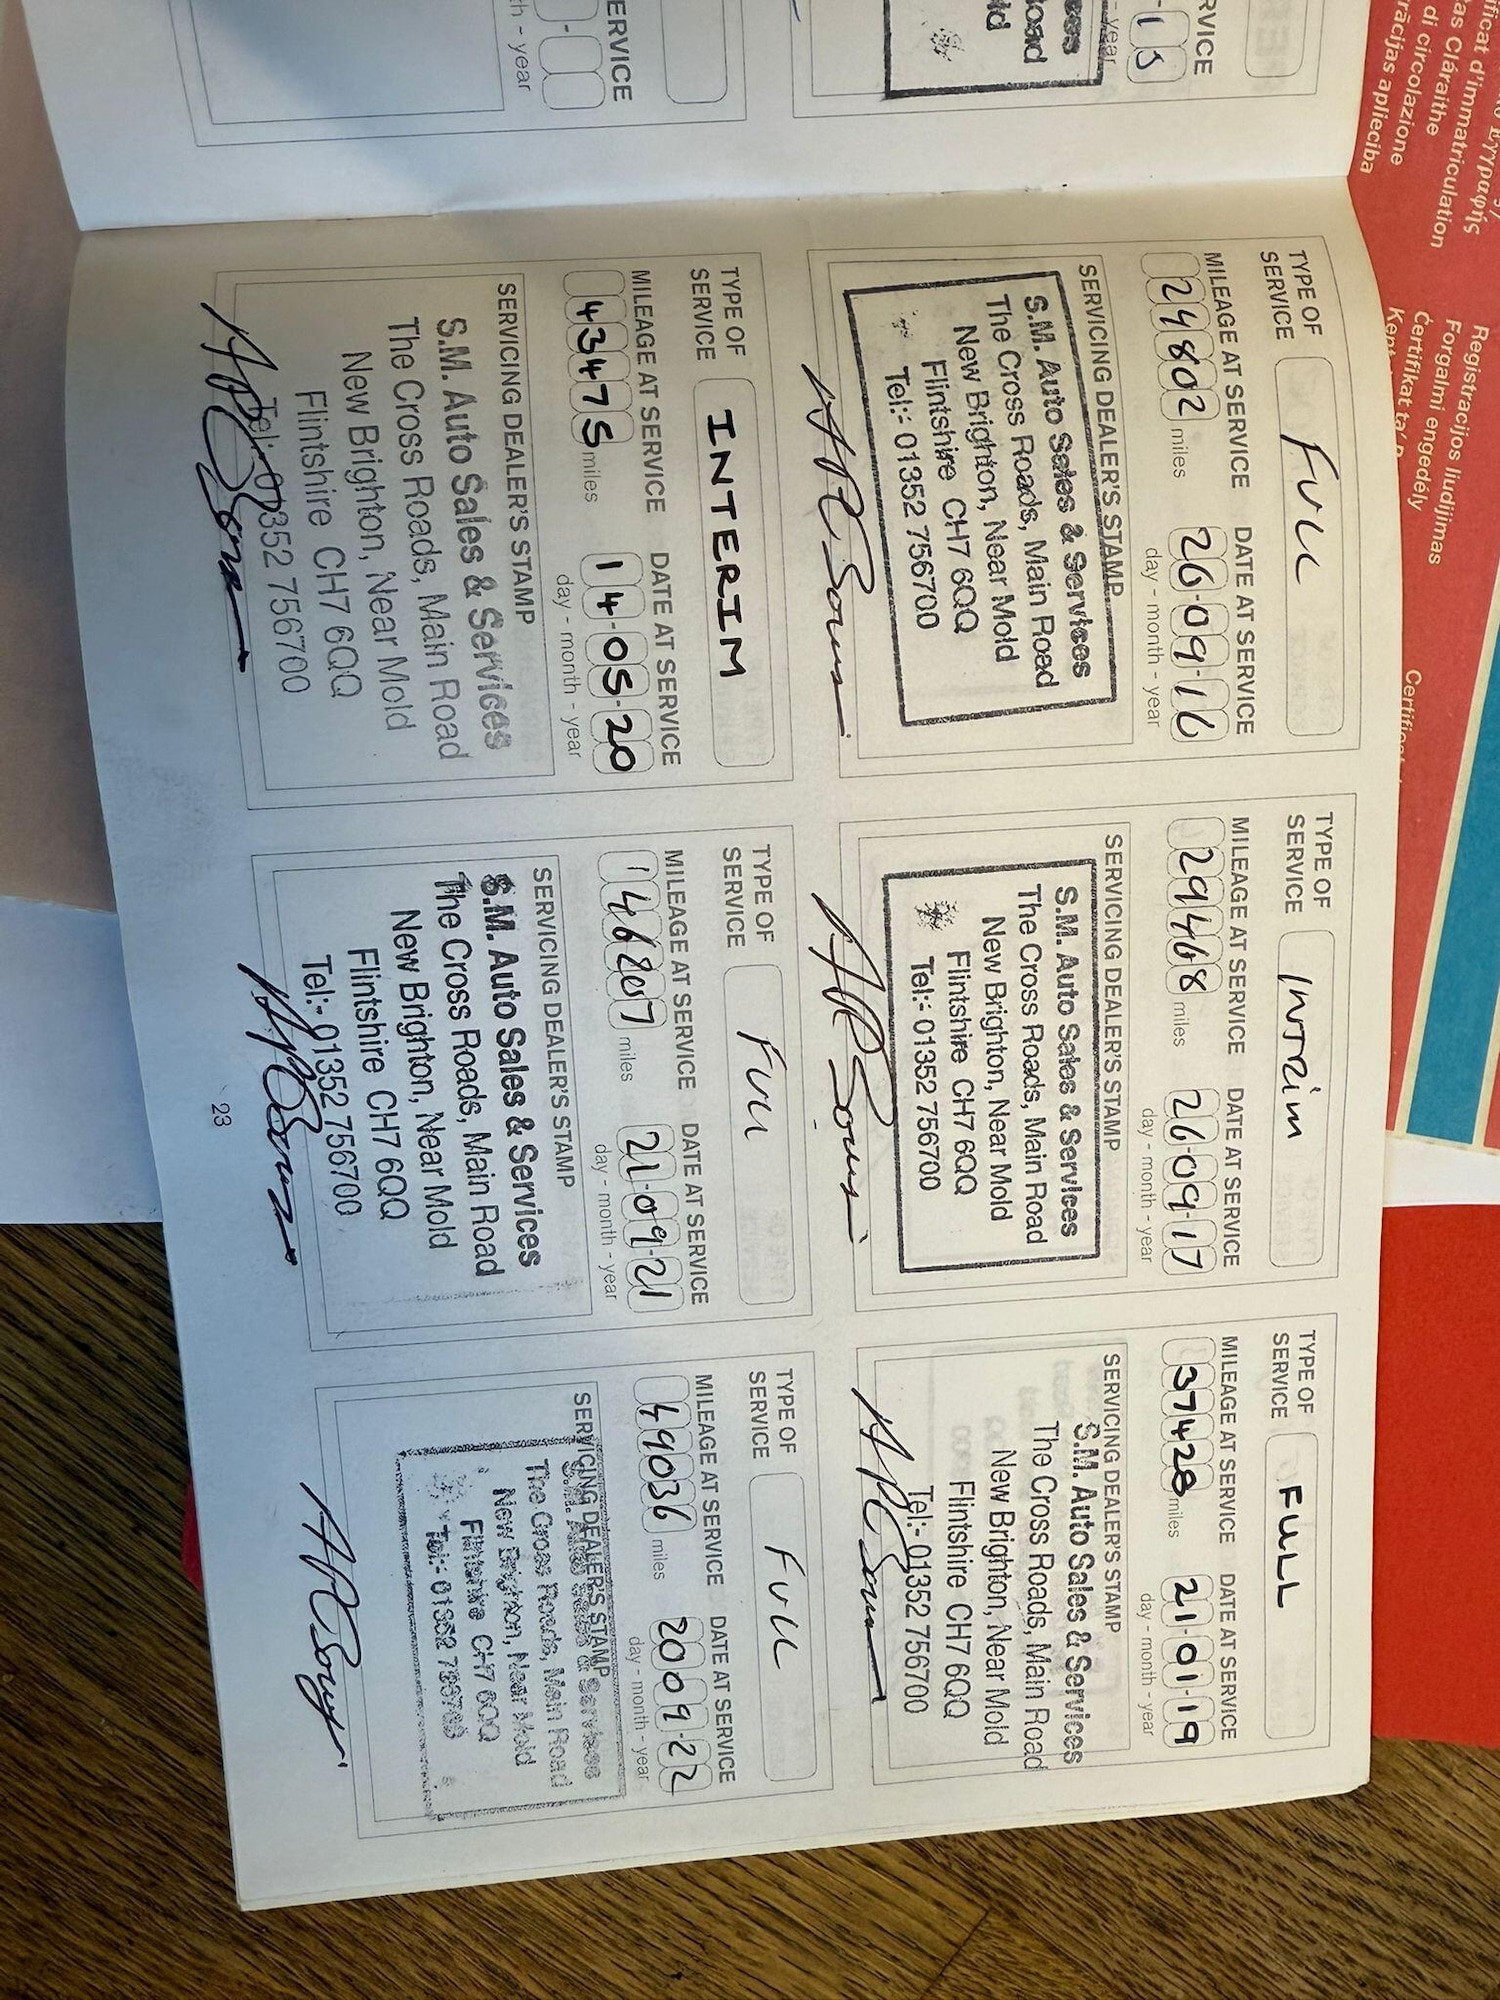 RVICE
-15
- year
ces
oad
ld
ERVICE
-
th - year
TYPE OF
SERVICE
FULL
MILEAGE AT SERVICE
DATE AT SERVICE
24802 miles
26-09-16
day - month - year
SERVICING DEALER'S STAMP
S.M. Auto Sales & Services
The Cross Roads, Main Road
New Brighton, Near Mold
Flintshire CH7 6QQ
Tel:- 01352 756700
TYPE OF
SERVICE
INTRIM
MILEAGE AT SERVICE
DATE AT SERVICE
29468 miles
26-09-17
day - month - year
SERVICING DEALER'S STAMP
S.M. Auto Sales & Services
The Cross Roads, Main Road
New Brighton, Near Mold
Flintshire CH7 6QQ
Tel:- 01352 756700
TYPE OF
SERVICE
FULL
MILEAGE AT SERVICE
DATE AT SERVICE
37428 miles
21-01-19
day - month - year
SERVICING DEALER'S STAMP
S.M. Auto Sales & Services
The Cross Roads, Main Road
New Brighton, Near Mold
Flintshire CH7 6QQ
Tel:- 01352 756700
TYPE OF
SERVICE
INTERIM
MILEAGE AT SERVICE
DATE AT SERVICE
43475 miles
14-05-20
day - month - year
SERVICING DEALER'S STAMP
S.M. Auto Sales & Services
The Cross Roads, Main Road
New Brighton, Near Mold
Flintshire CH7 6QQ
Tel:- 01352 756700
TYPE OF
SERVICE
FULL
MILEAGE AT SERVICE
DATE AT SERVICE
miles
21-09-21
day - month - year
SERVICING DEALER'S STAMP
S.M. Auto Sales & Services
The Cross Roads, Main Road
New Brighton, Near Mold
Flintshire CH7 6QQ
Tel:- 01352 756700
TYPE OF
SERVICE
FULL
MILEAGE AT SERVICE
DATE AT SERVICE
49036 miles
20-09-22
day - month - year
SERVICING DEALER'S STAMP
S.M. Auto Sales & Services
The Cross Roads, Main Road
New Brighton, Near Mold
Flintshire CH7 6QQ
Tel:- 01352 756700
23
Εγγραφής
ificat d'immatriculation
as Cláraithe
di circolazione
rācijas apliecība
Registracijos liudijimas
Forgalmi engedély
Ċertifikat ta'